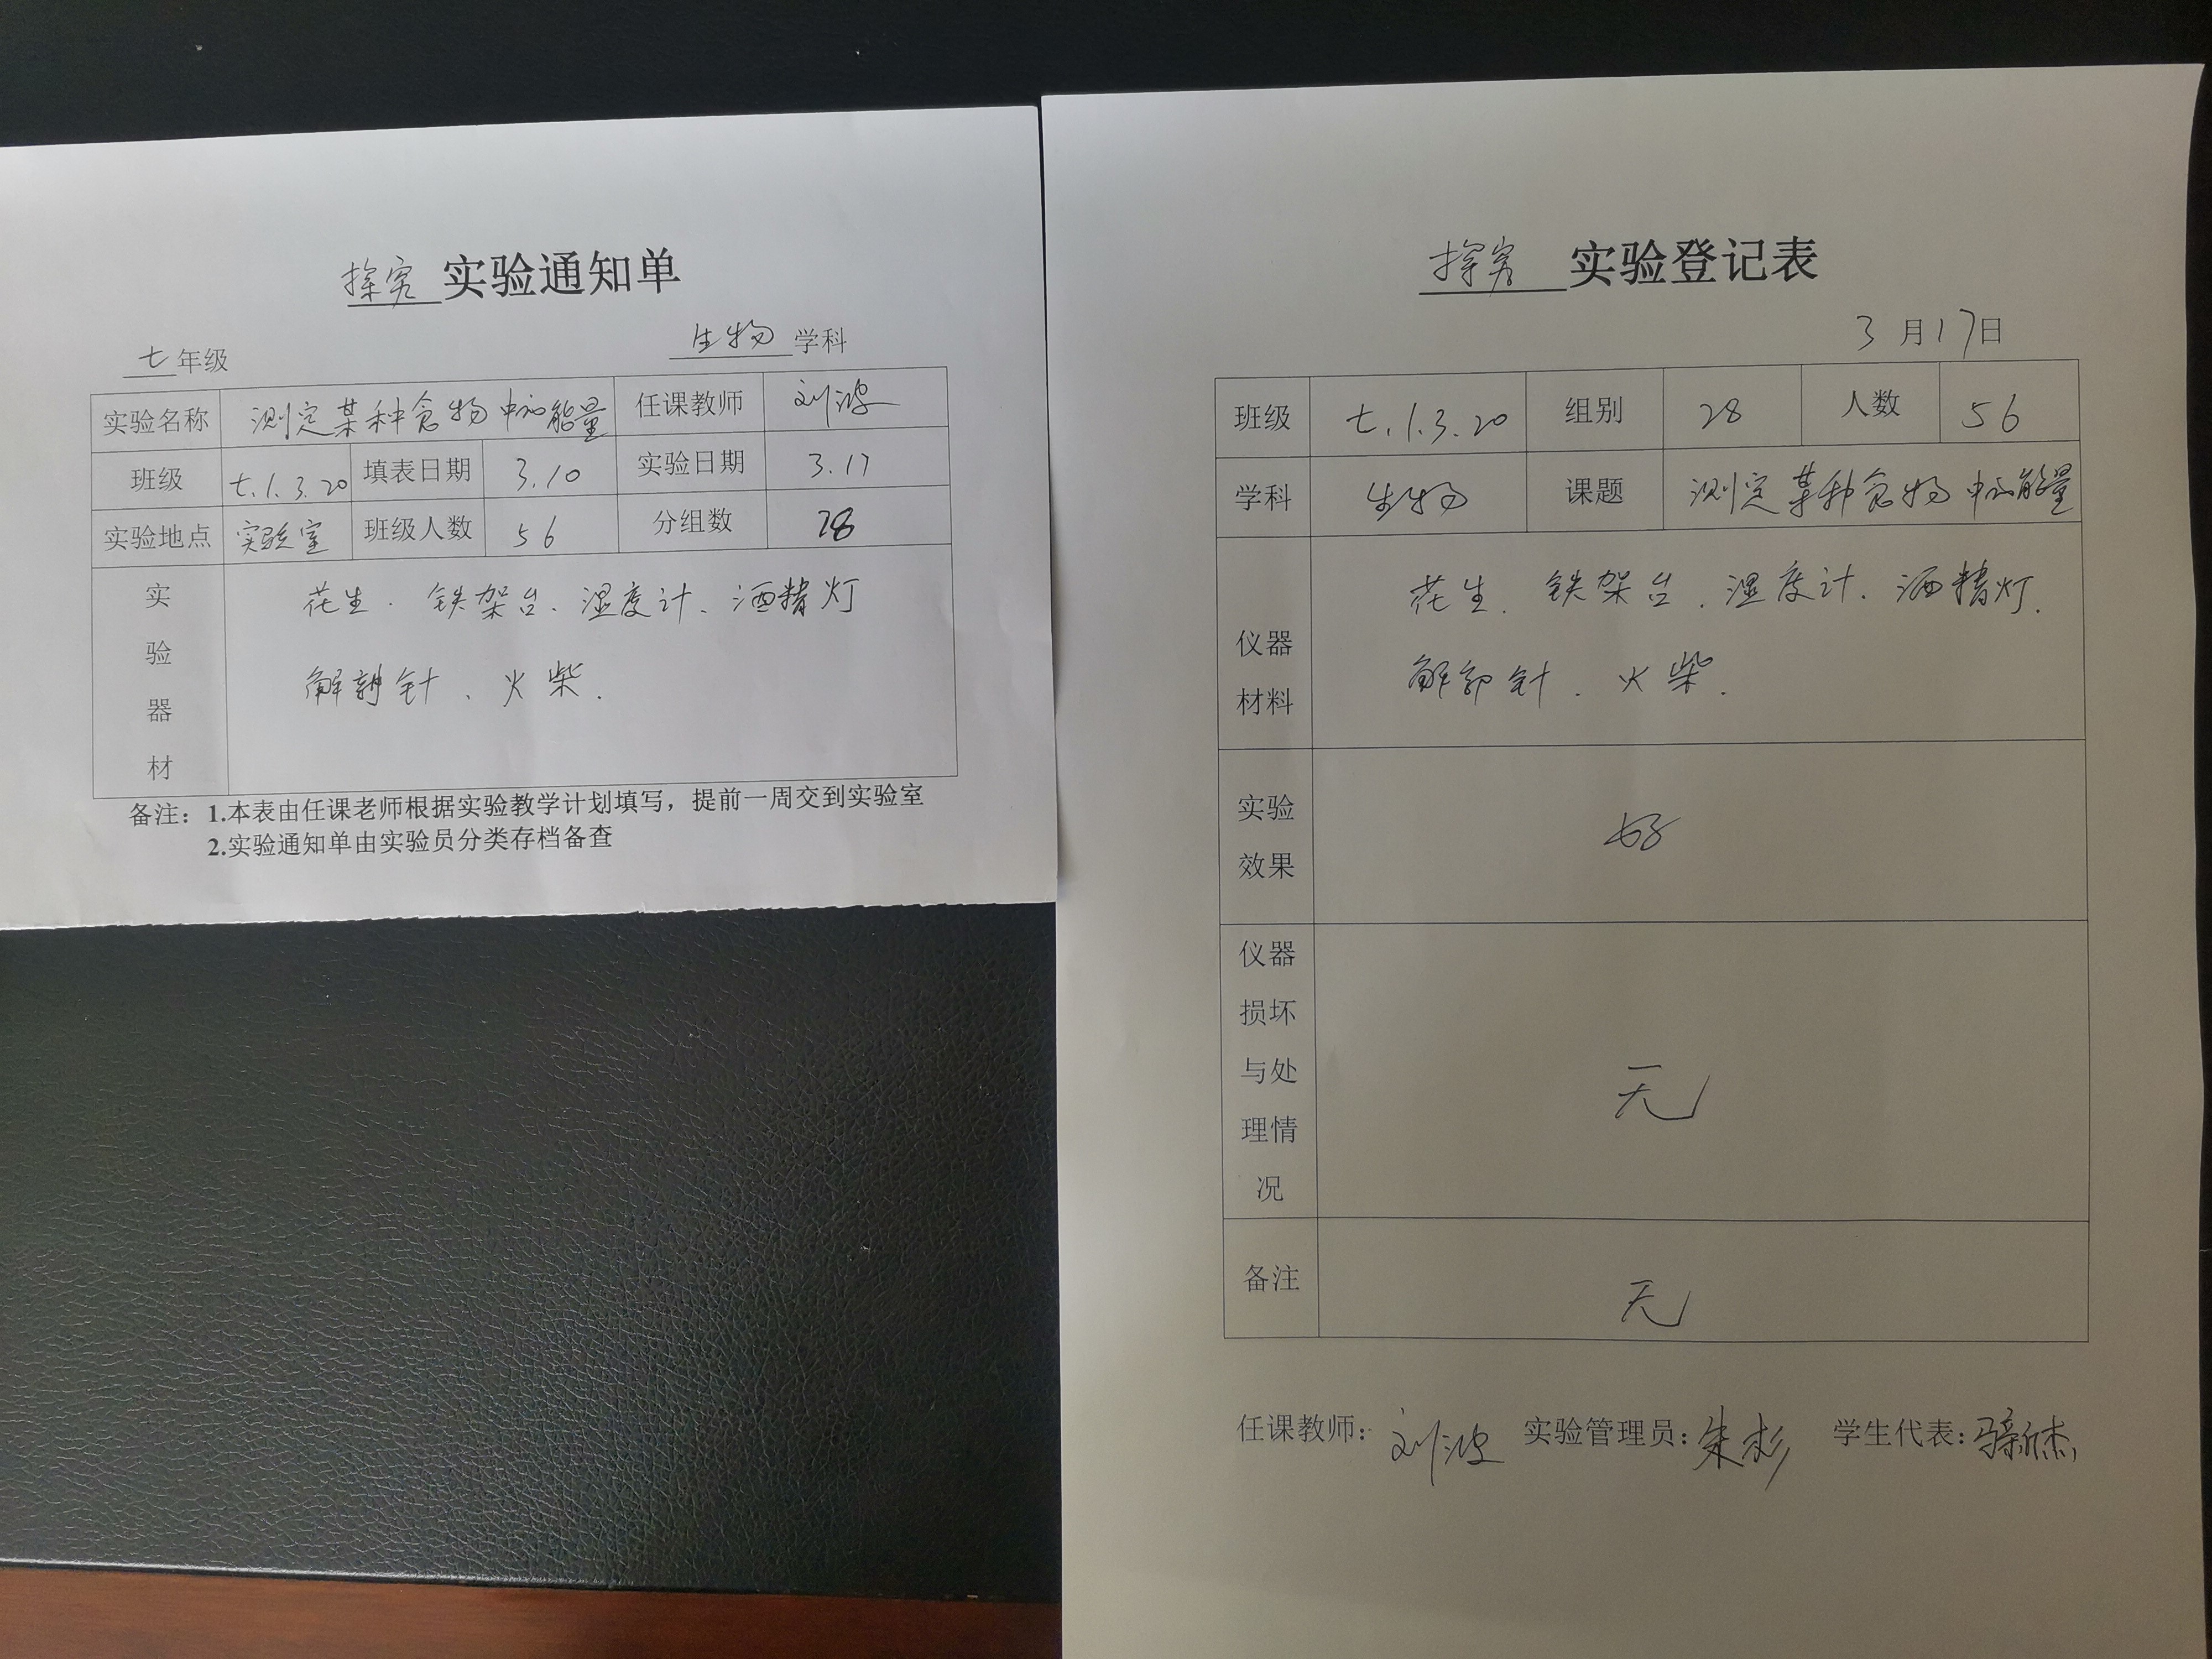 探究 实验通知单
七年级 生物 学科
实验名称 测定某种食物中的能量 任课教师 刘波
班级 七.1.3.20 填表日期 3.10 实验日期 3.17
实验地点 实验室 班级人数 56 分组数 28
实验器材 花生.铁架台、温度计、酒精灯
解剖针、火柴.
备注：1.本表由任课老师根据实验教学计划填写，提前一周交到实验室
2.实验通知单由实验员分类存档备查
探究 实验登记表
3月17日
班级 七.1.3.20 组别 28 人数 56
学科 生物 课题 测定某种食物中的能量
仪器材料 花生.铁架台.温度计.酒精灯.
解剖针.火柴.
实验效果 好
仪器损坏与处理情况 无
备注 无
任课教师：刘波 实验管理员：朱彬 学生代表：